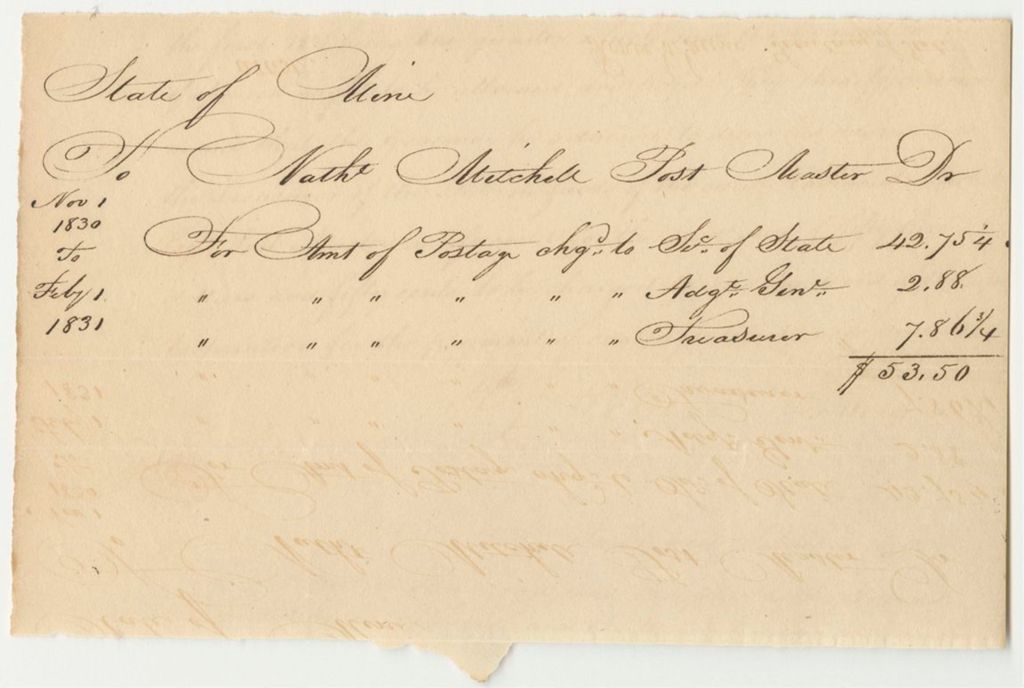 State of Mine
To Nathl Mitchell Post Master Dr
Nov 1
1830
To
Feby 1
1831
For Amt of Postage chgd to Sec. of State 42.75¼
" " " " " " Adgt. Genl. 2.88
" " " " " " Treasurer 7.86¾
$53.50